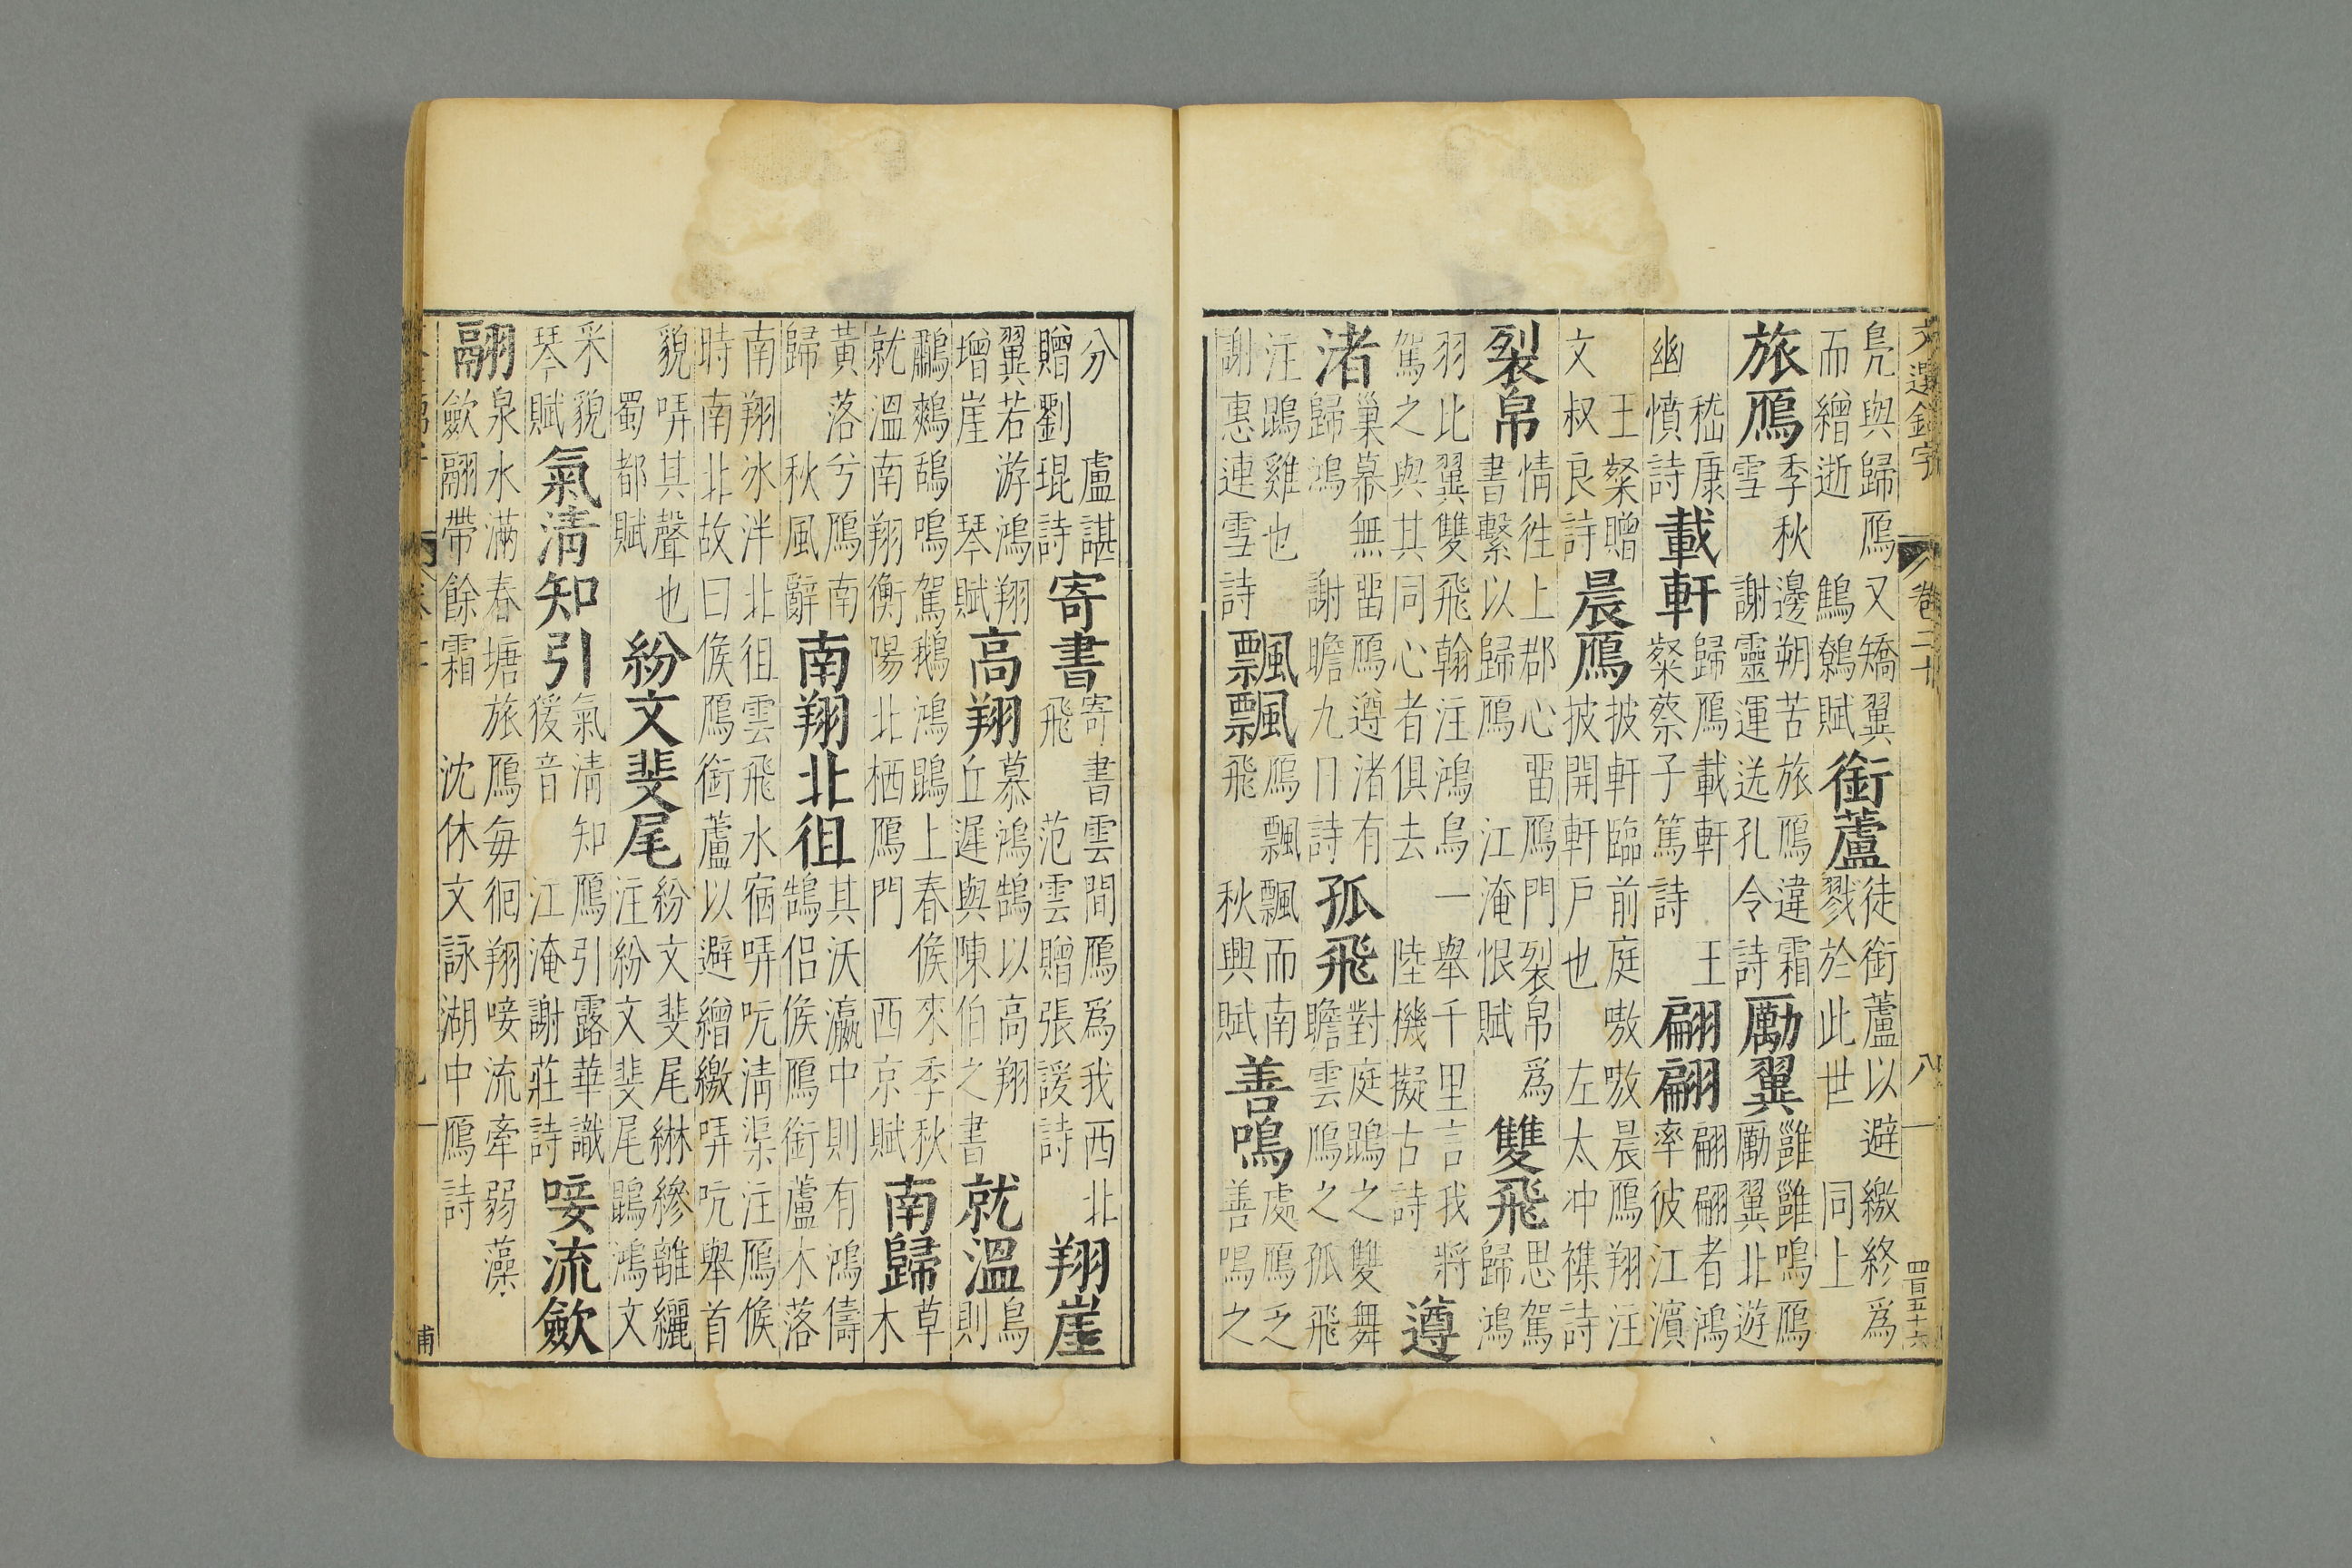 文選錦字 卷二十 八 四百五十六
鳧與歸鴈又矯翼而繒逝 鷦鷯賦 銜蘆 徒銜蘆以避繳終爲戮於此世 同上
旅鴈 季秋邊朔苦旅鴈違霜雪 謝靈運送孔令詩 勵翼 雝雝鳴鴈勵翼北遊
嵇康幽憤詩 載軒 歸鴈載軒 王粲蔡子篤詩 翩翩 翩翩者鴻率彼江濱
王粲贈文叔良詩 晨鴈 披軒臨前庭嗷嗷晨鴈翔注披開軒戶也 左太冲襍詩
裂帛 情徃上郡心畱鴈門裂帛爲書繫以歸鴈 江淹恨賦 雙飛 思駕歸鴻
羽比翼雙飛翰注鴻鳥一舉千里言我將駕之與其同心者俱去 陸機擬古詩 遵
渚 巢幕無畱鴈遵渚有歸鴻 謝瞻九日詩 孤飛 對庭鵾之雙舞瞻雲鴈之孤飛
注鵾雞也 謝惠連雪詩 飄飄 鴈飄飄而南飛 秋興賦 善鳴 處鴈乏善鳴之
分 盧諶贈劉琨詩 寄書 寄書雲間鴈爲我西北飛 范雲贈張謖詩 翔崖
翼若游鴻翔增崖 琴賦 高翔 慕鴻鵠以高翔 丘遲與陳伯之書 就溫 鳥則
鷫鷞鴰鳴駕鵝鴻鵾上春候來季秋就溫南翔衡陽北栖鴈門 西京賦 南歸 草木
黃落兮鴈南歸 秋風辭 南翔北徂 其沃瀛中則有鴻儔鵠侶候鴈銜蘆木落
南翔冰泮北徂雲飛水宿哢吭清渠注鴈候時南北故曰候鴈銜蘆以避繒繳哢吭舉首
貌哢其聲也 蜀都賦 紛文斐尾 紛文斐尾綝縿離纚注紛文斐尾鵾鴻文
釆貌 琴賦 氣清知引 氣清知鴈引露華識猨音 江淹謝莊詩 唼流歛
翮 泉水滿春塘旅鴈毎徊翔唼流牽弱藻歛翮帶餘霜 沈休文詠湖中鴈詩
甫